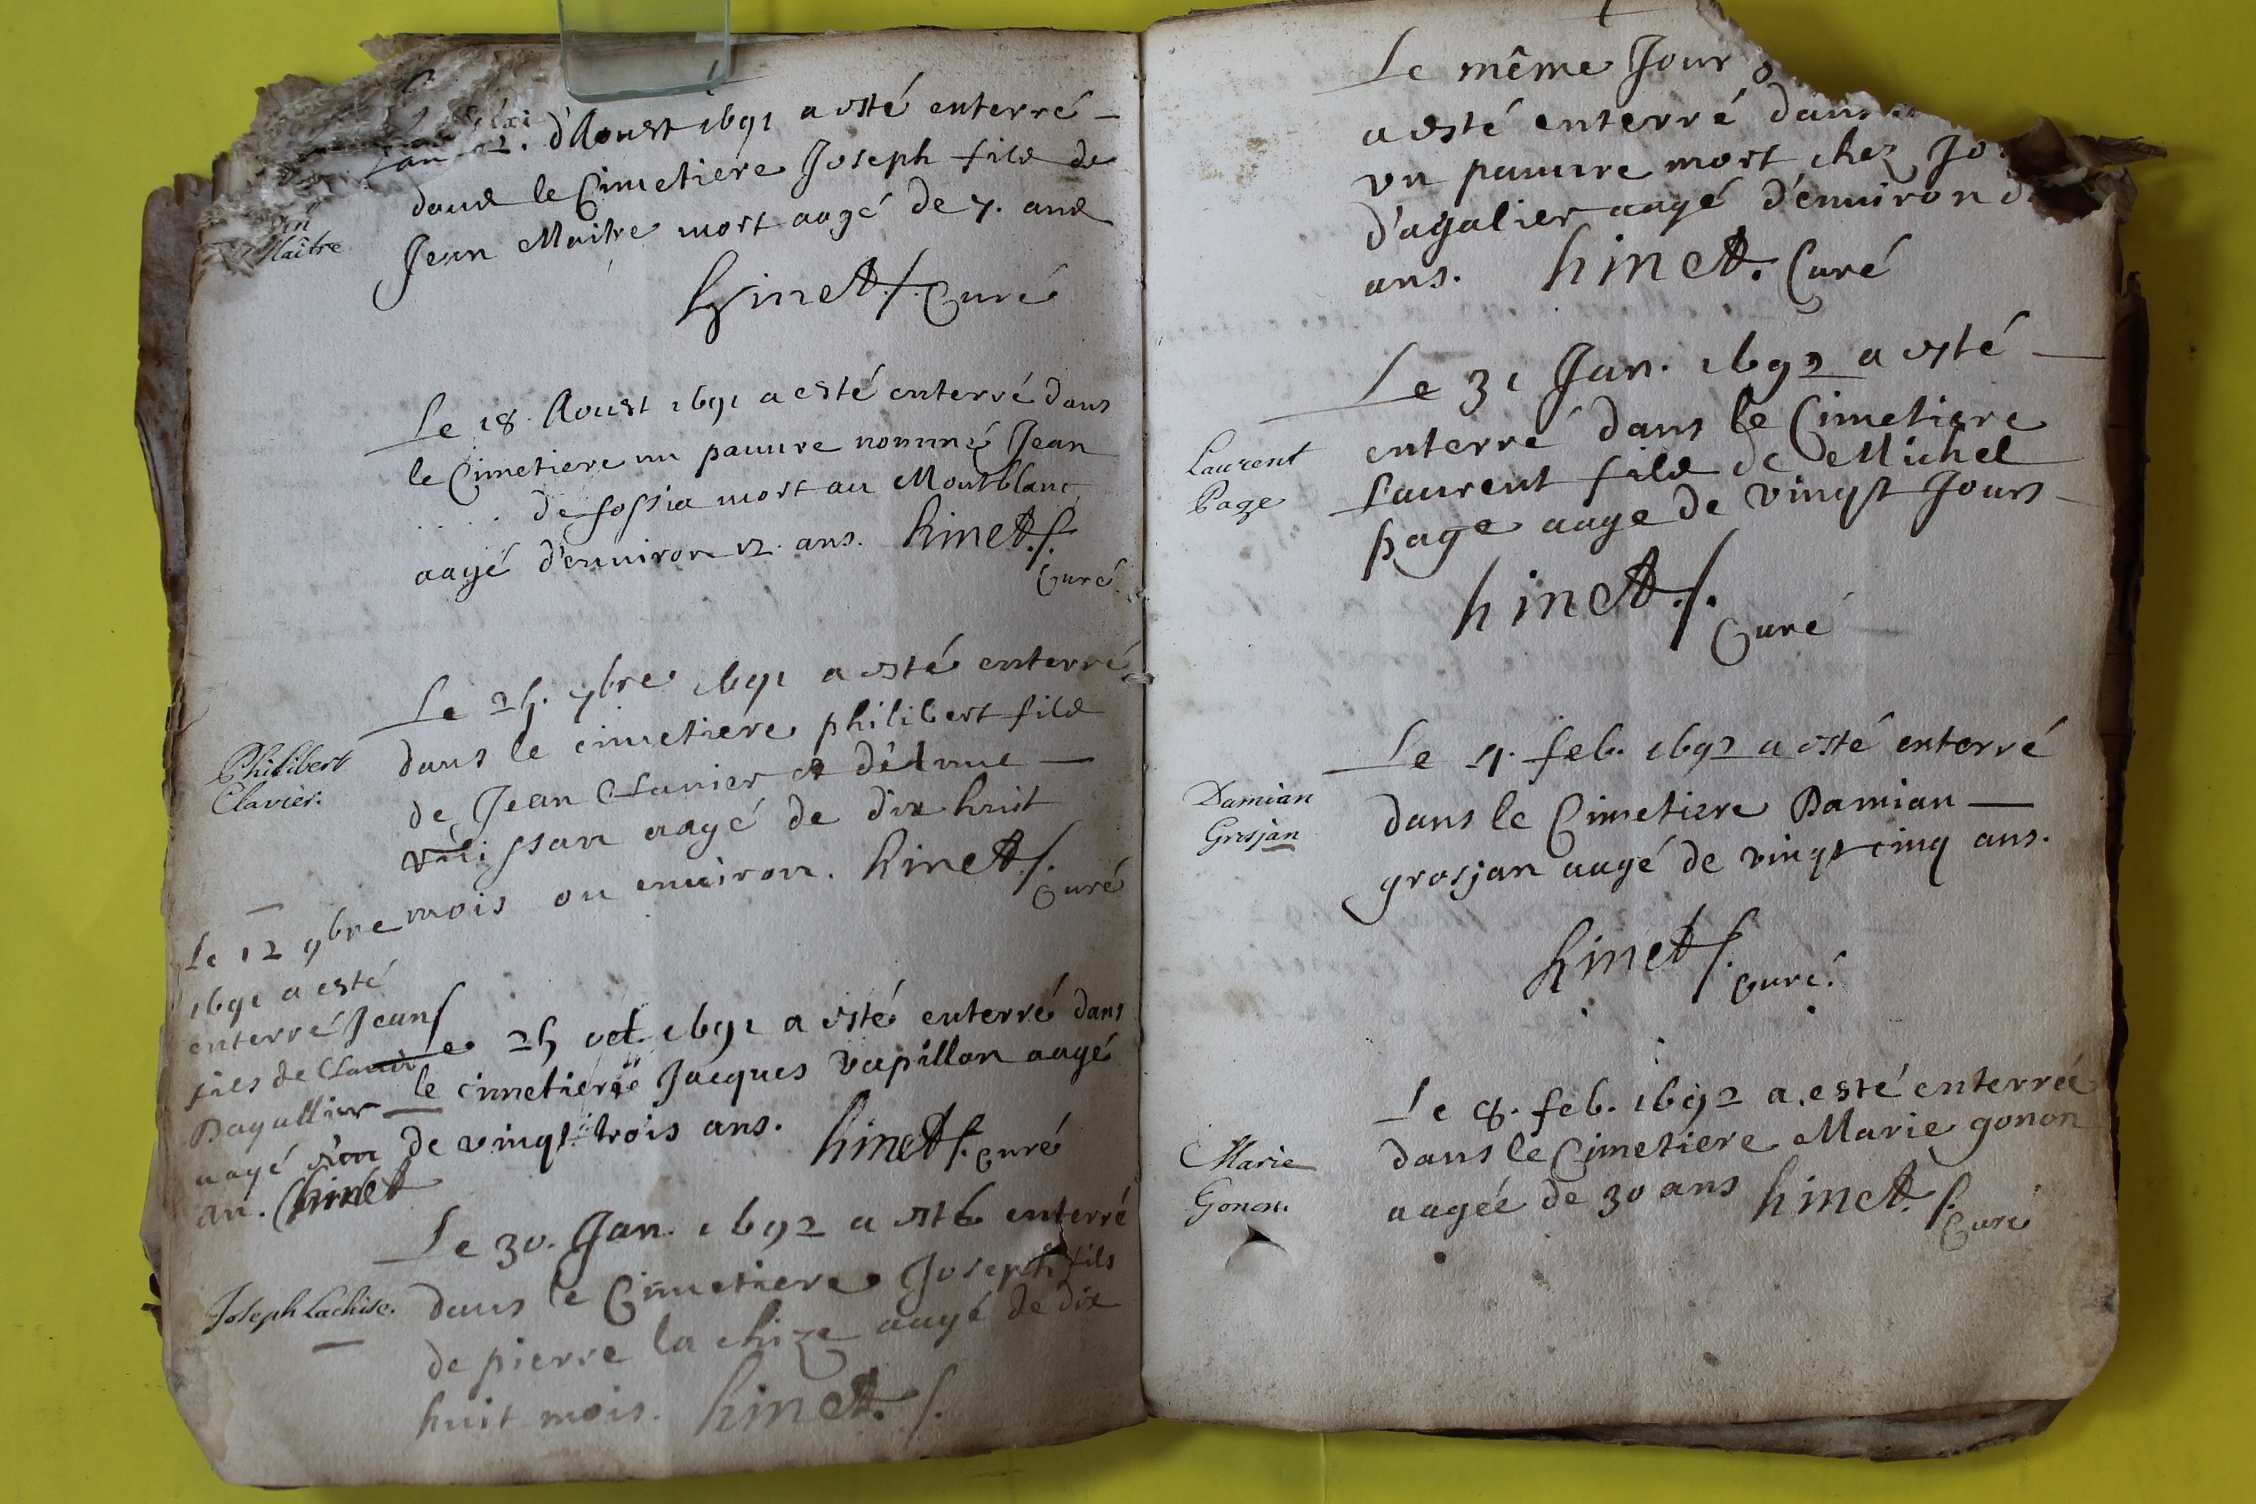 d'Aoust 1691 a esté enterré
dans le Cimetiere Joseph fils de
Jean Maitre mort aagé de 7. ans
Maître
hinet. Curé
Le 18. Aoust 1691 a esté enterré dans
le Cimetiere un pauure nommé Jean
..... de fossia mort au Montblanc
aagé d'enuiron 12. ans. hinet.
Curé
Le 25. 7bre 1691 a esté enterré
dans le cimetiere philibert fils
Philibert
Clavier.
de Jean Clauier et
aagé de dix huit
mois ou enuiron. hinet.
Curé
Le 12 9bre
1691 a esté
enterré Jean
fils de Claude
Dagallier
aagé d'un
an. hinet
Le 25 oct. 1691 a esté enterré dans
le cimetiere Jacques vapillon aagé
de vingt trois ans. hinet. curé
Le 30. Jan. 1692 a esté enterré
Joseph Lachise.
dans le Cimetiere Joseph fils
de pierre la chize aagé de dix
huit mois. hinet.
Le même Jour
a esté enterré dans
vn pauure mort chez
d'agalier aagé d'enuiron
ans. hinet. Curé
Le 31 Jan. 1692 a esté
enterré dans le Cimetiere
Laurent
Page
Laurent fils de Michel
page aage de vingt Jours
hinet.
Curé
Le 4. feb. 1692 a esté enterré
Damian
Grosjan
dans le Cimetiere Damian
grosjan aagé de vingt cinq ans.
hinet.
curé.
Le 8. feb. 1692 a esté enterrée
Marie
Gonon.
dans le Cimetiere Marie gonon
aagée de 30 ans hinet.
Curé